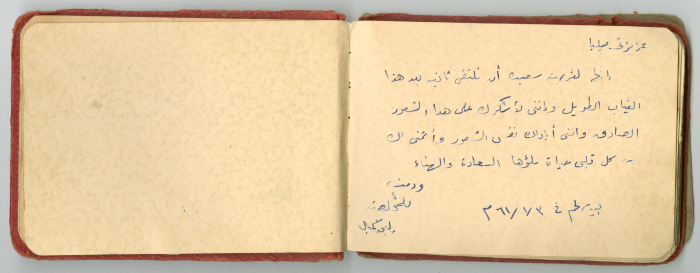 عزيزتي ميليا
إنها لفرصة سعيدة أن نلتقي ثانية بعد هذا
الغياب الطويل وإنني لأشكرك على هذا الشعور
الصادق وانني أبادلك نفس الشعور وأتمنى لك
من كل قلبي حياة ملؤها السعادة والهناء
ودمت
المخلصة
بيت لحم في ٦١/٧/٣ م